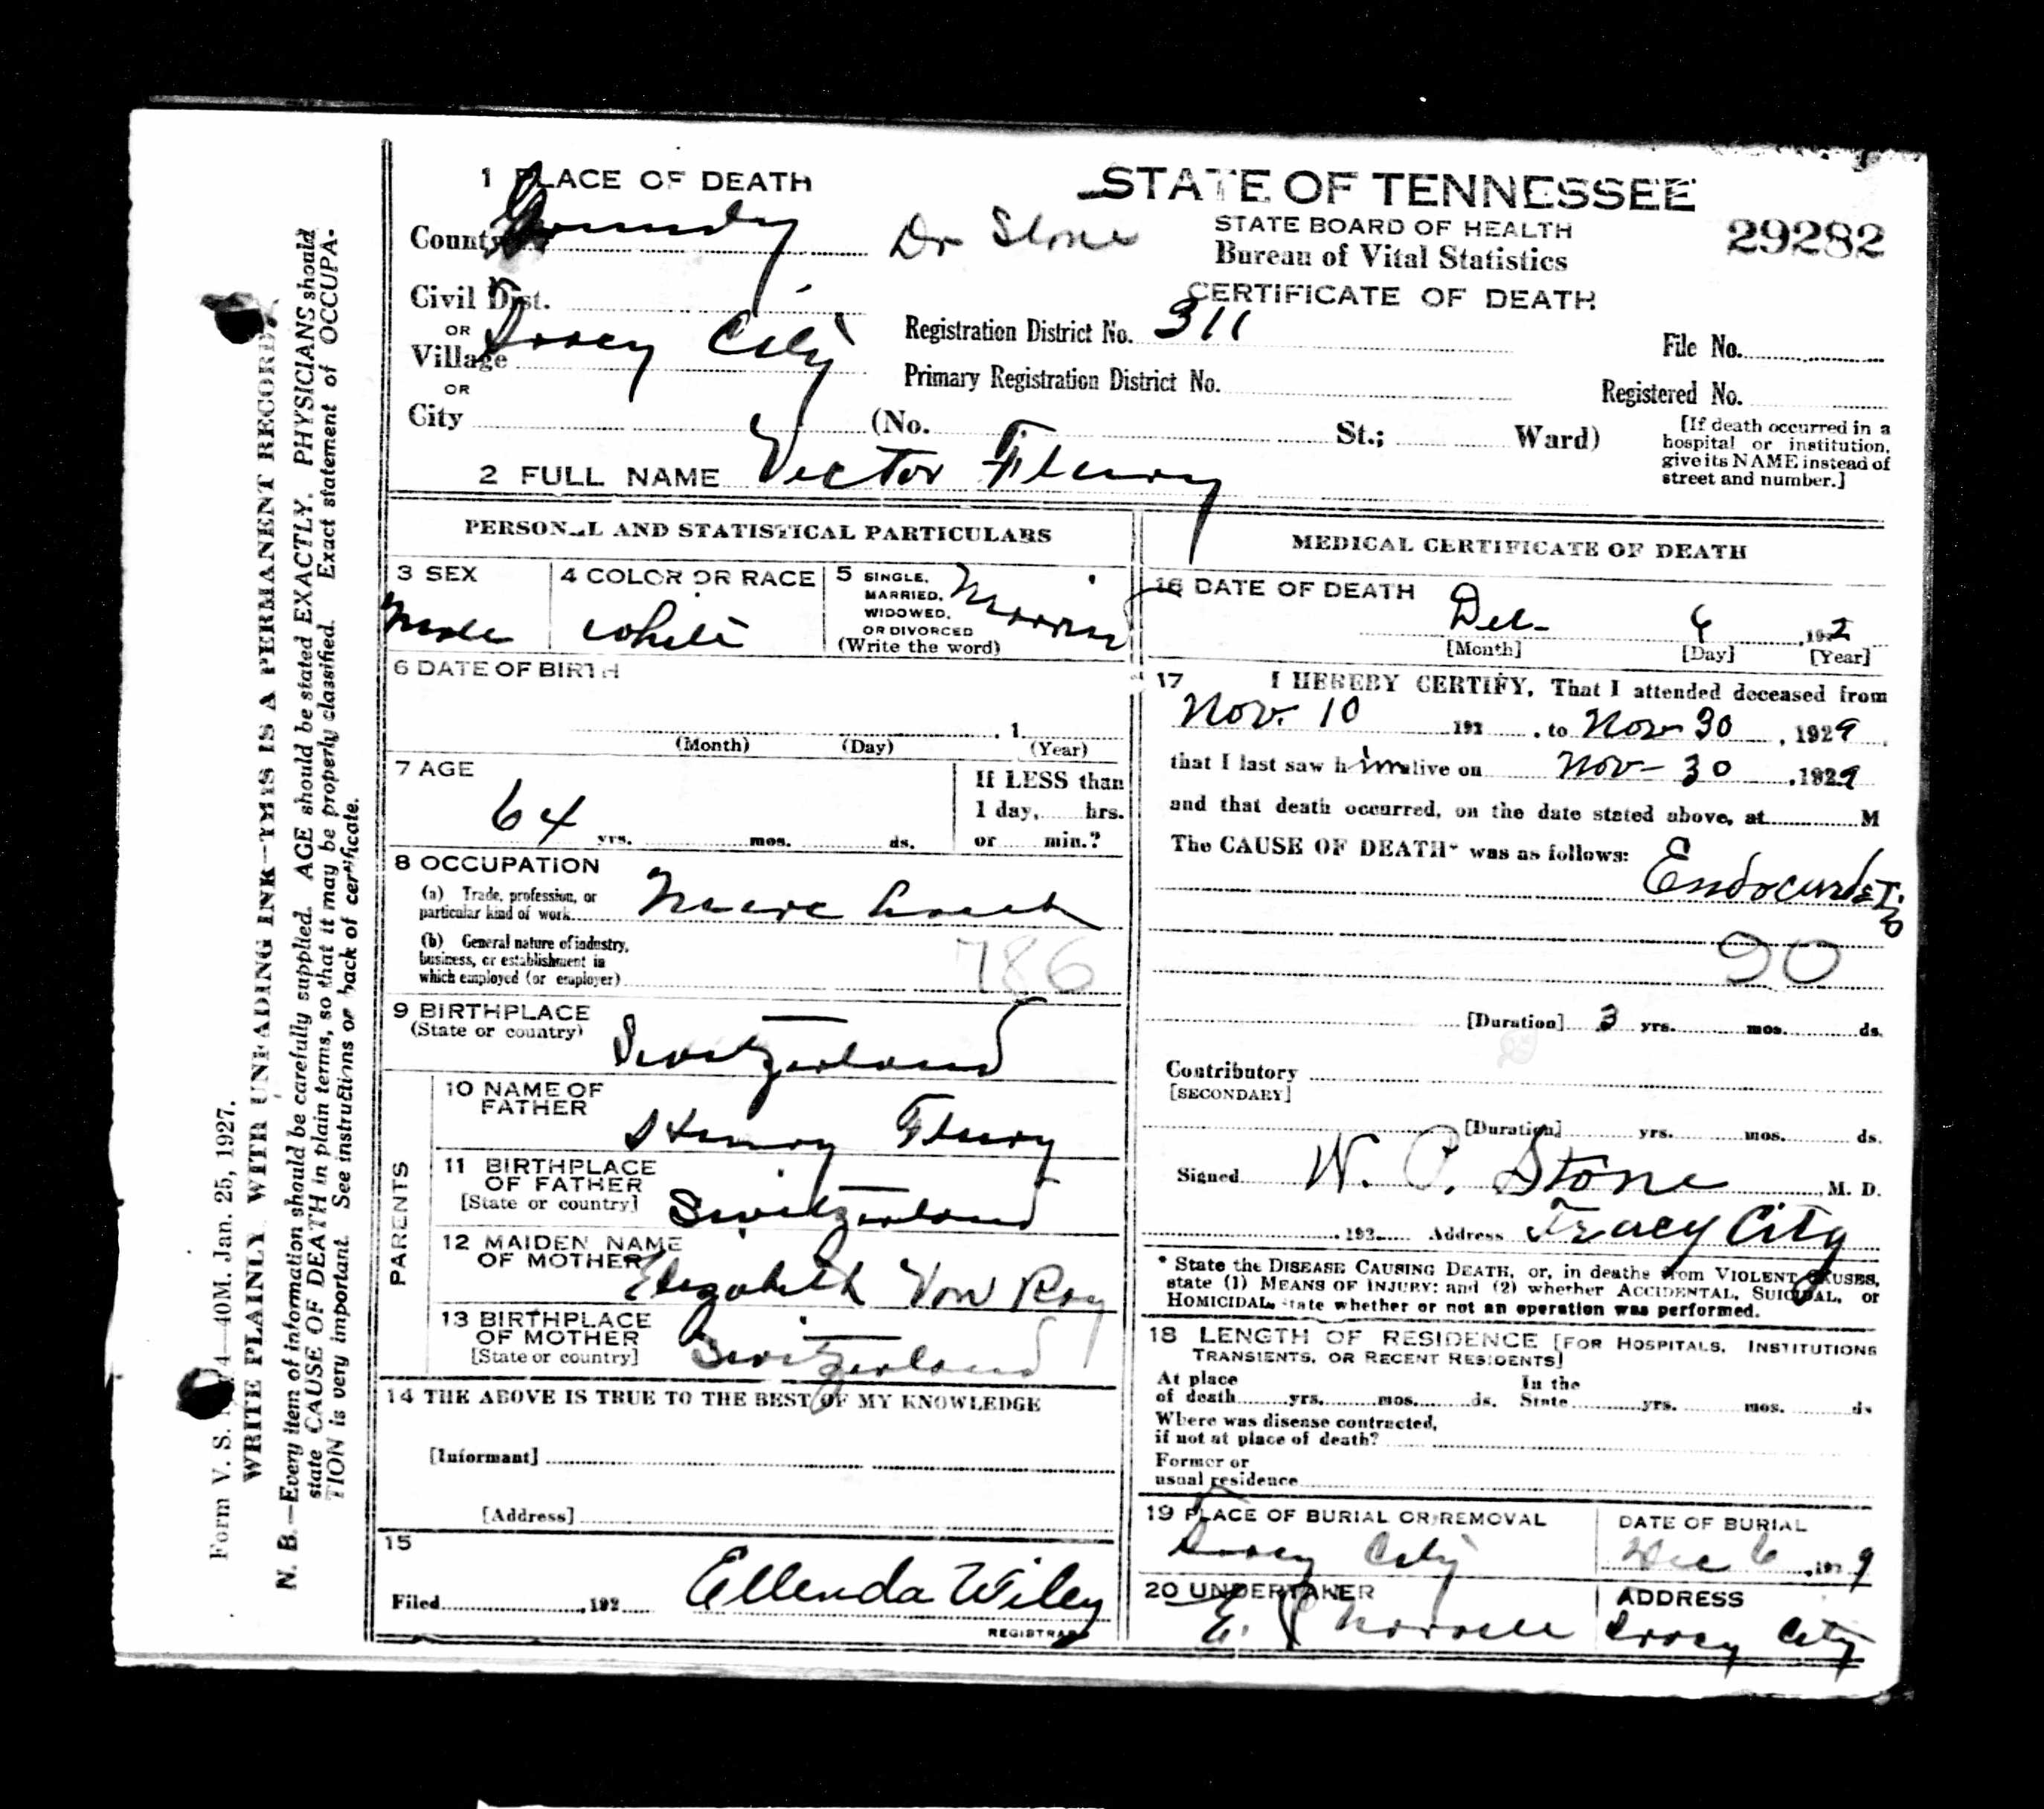 1 PLACE OF DEATH
County Grundy
Dr Stone
STATE OF TENNESSEE
STATE BOARD OF HEALTH
Bureau of Vital Statistics
CERTIFICATE OF DEATH
29282
Civil Dist.
OR
Village Tracy City
OR
City (No. St.; Ward)
Registration District No. 311
Primary Registration District No.
File No.
Registered No.
[If death occurred in a
hospital or institution,
give its NAME instead of
street and number.]
2 FULL NAME Victor Flury
PERSONAL AND STATISTICAL PARTICULARS
3 SEX
Male
4 COLOR OR RACE
White
5 SINGLE,
MARRIED,
WIDOWED,
OR DIVORCED
(Write the word)
6 DATE OF BIRTH
, 1
(Month) (Day) (Year)
7 AGE
64 yrs. mos. ds.
If LESS than
1 day, hrs.
or min.?
8 OCCUPATION
(a) Trade, profession, or
particular kind of work
(b) General nature of industry,
business, or establishment in
which employed (or employer)
786
9 BIRTHPLACE
(State or country) Switzerland
PARENTS
10 NAME OF
FATHER Henry Flury
11 BIRTHPLACE
OF FATHER
[State or country] Switzerland
12 MAIDEN NAME
OF MOTHER Elizabeth Von Roy
13 BIRTHPLACE
OF MOTHER
[State or country] Switzerland
14 THE ABOVE IS TRUE TO THE BEST OF MY KNOWLEDGE
[Informant]
[Address]
15
Filed , 192 Ellenda Wiley
REGISTRAR
MEDICAL CERTIFICATE OF DEATH
16 DATE OF DEATH
Dec 192
[Month] [Day] [Year]
17 I HEREBY CERTIFY, That I attended deceased from
Nov. 10 192 , to Nov 30 , 1929,
that I last saw him alive on Nov 30 , 1929
and that death occurred, on the date stated above, at M
The CAUSE OF DEATH* was as follows:
Endocarditis
90
[Duration] 3 yrs. mos. ds.
Contributory
[SECONDARY]
[Duration] yrs. mos. ds.
Signed W. P. Stone , M. D.
, 192 Address Tracy City
* State the DISEASE CAUSING DEATH, or, in deaths from VIOLENT CAUSES,
state (1) MEANS OF INJURY; and (2) whether ACCIDENTAL, SUICIDAL, or
HOMICIDAL, state whether or not an operation was performed.
18 LENGTH OF RESIDENCE [FOR HOSPITALS, INSTITUTIONS
TRANSIENTS, OR RECENT RESIDENTS]
At place
of death yrs. mos. ds.
In the
State yrs. mos. ds
Where was disease contracted,
if not at place of death?
Former or
usual residence
19 PLACE OF BURIAL OR REMOVAL
Tracy City
DATE OF BURIAL
Dec 6, 1929
20 UNDERTAKER
ADDRESS
Tracy City
Form V. S. 4—40M. Jan. 25, 1927.
WRITE PLAINLY WITH UNFADING INK—THIS IS A PERMANENT RECORD.
N. B.—Every item of information should be carefully supplied. AGE should be stated EXACTLY. PHYSICIANS should
state CAUSE OF DEATH in plain terms, so that it may be properly classified. Exact statement of OCCUPA-
TION is very important. See instructions on back of certificate.